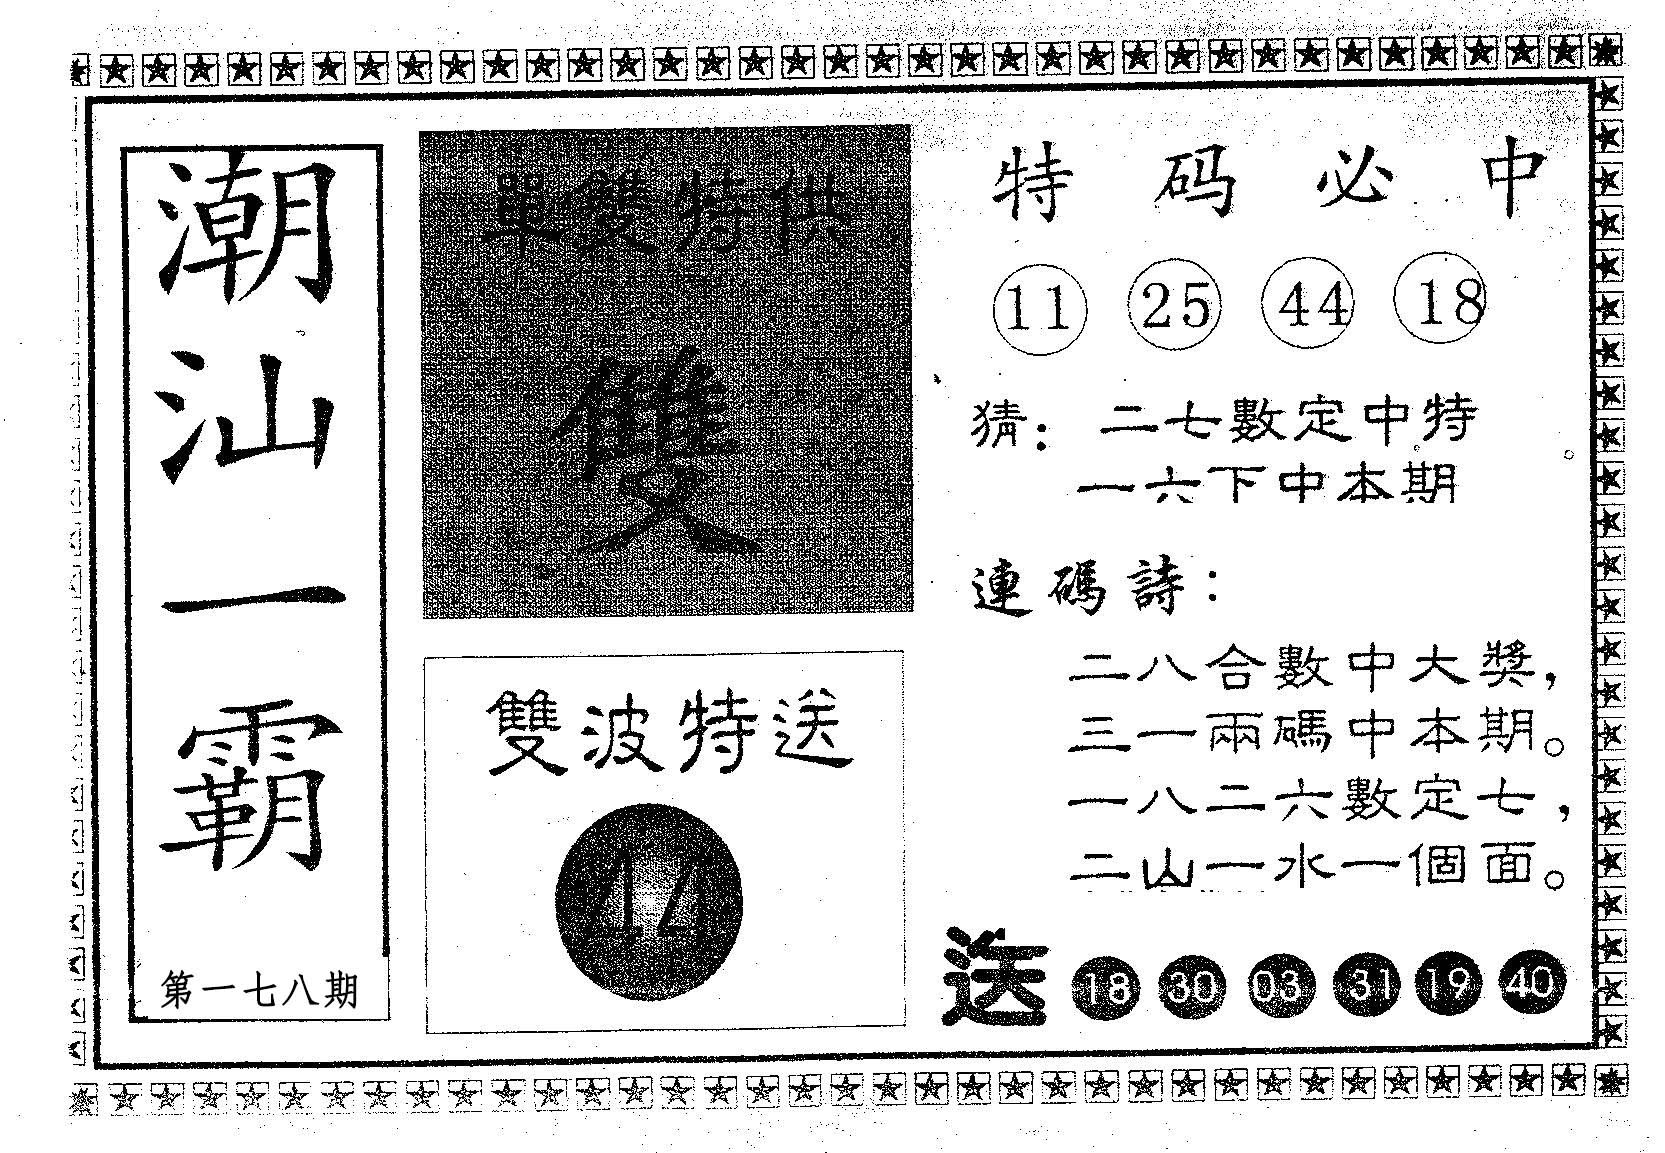 潮汕一霸
第一七八期
單雙特供
雙
雙波特送
44
特码必中
11 25 44 18
猜：二七數定中特
一六下中本期
連碼詩：
二八合數中大獎，
三一兩碼中本期。
一八二六數定七，
二山一水一個面。
送 18 30 03 31 19 40